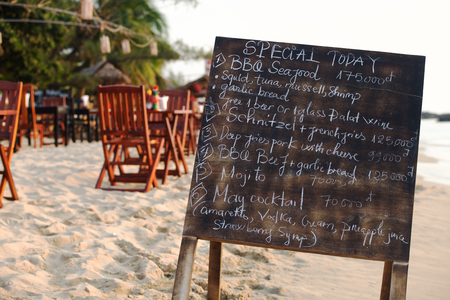 SPECIAL TODAY
1 BBQ Seafood 175000đ
• Squid, tuna, mussell, shrimp
• garlic bread
• free 1 beer or 1 glass Dalat wine
2 Schnitzel + frenchfries 125000đ
3 Deep fries pork with cheese 99000đ
4 BBQ Beef + garlic bread 125000đ
5 Mojito 70000đ
May cocktail 70000đ
(amaretto, Vodka, Cream, pineapple juice
Strawberry Syrup)